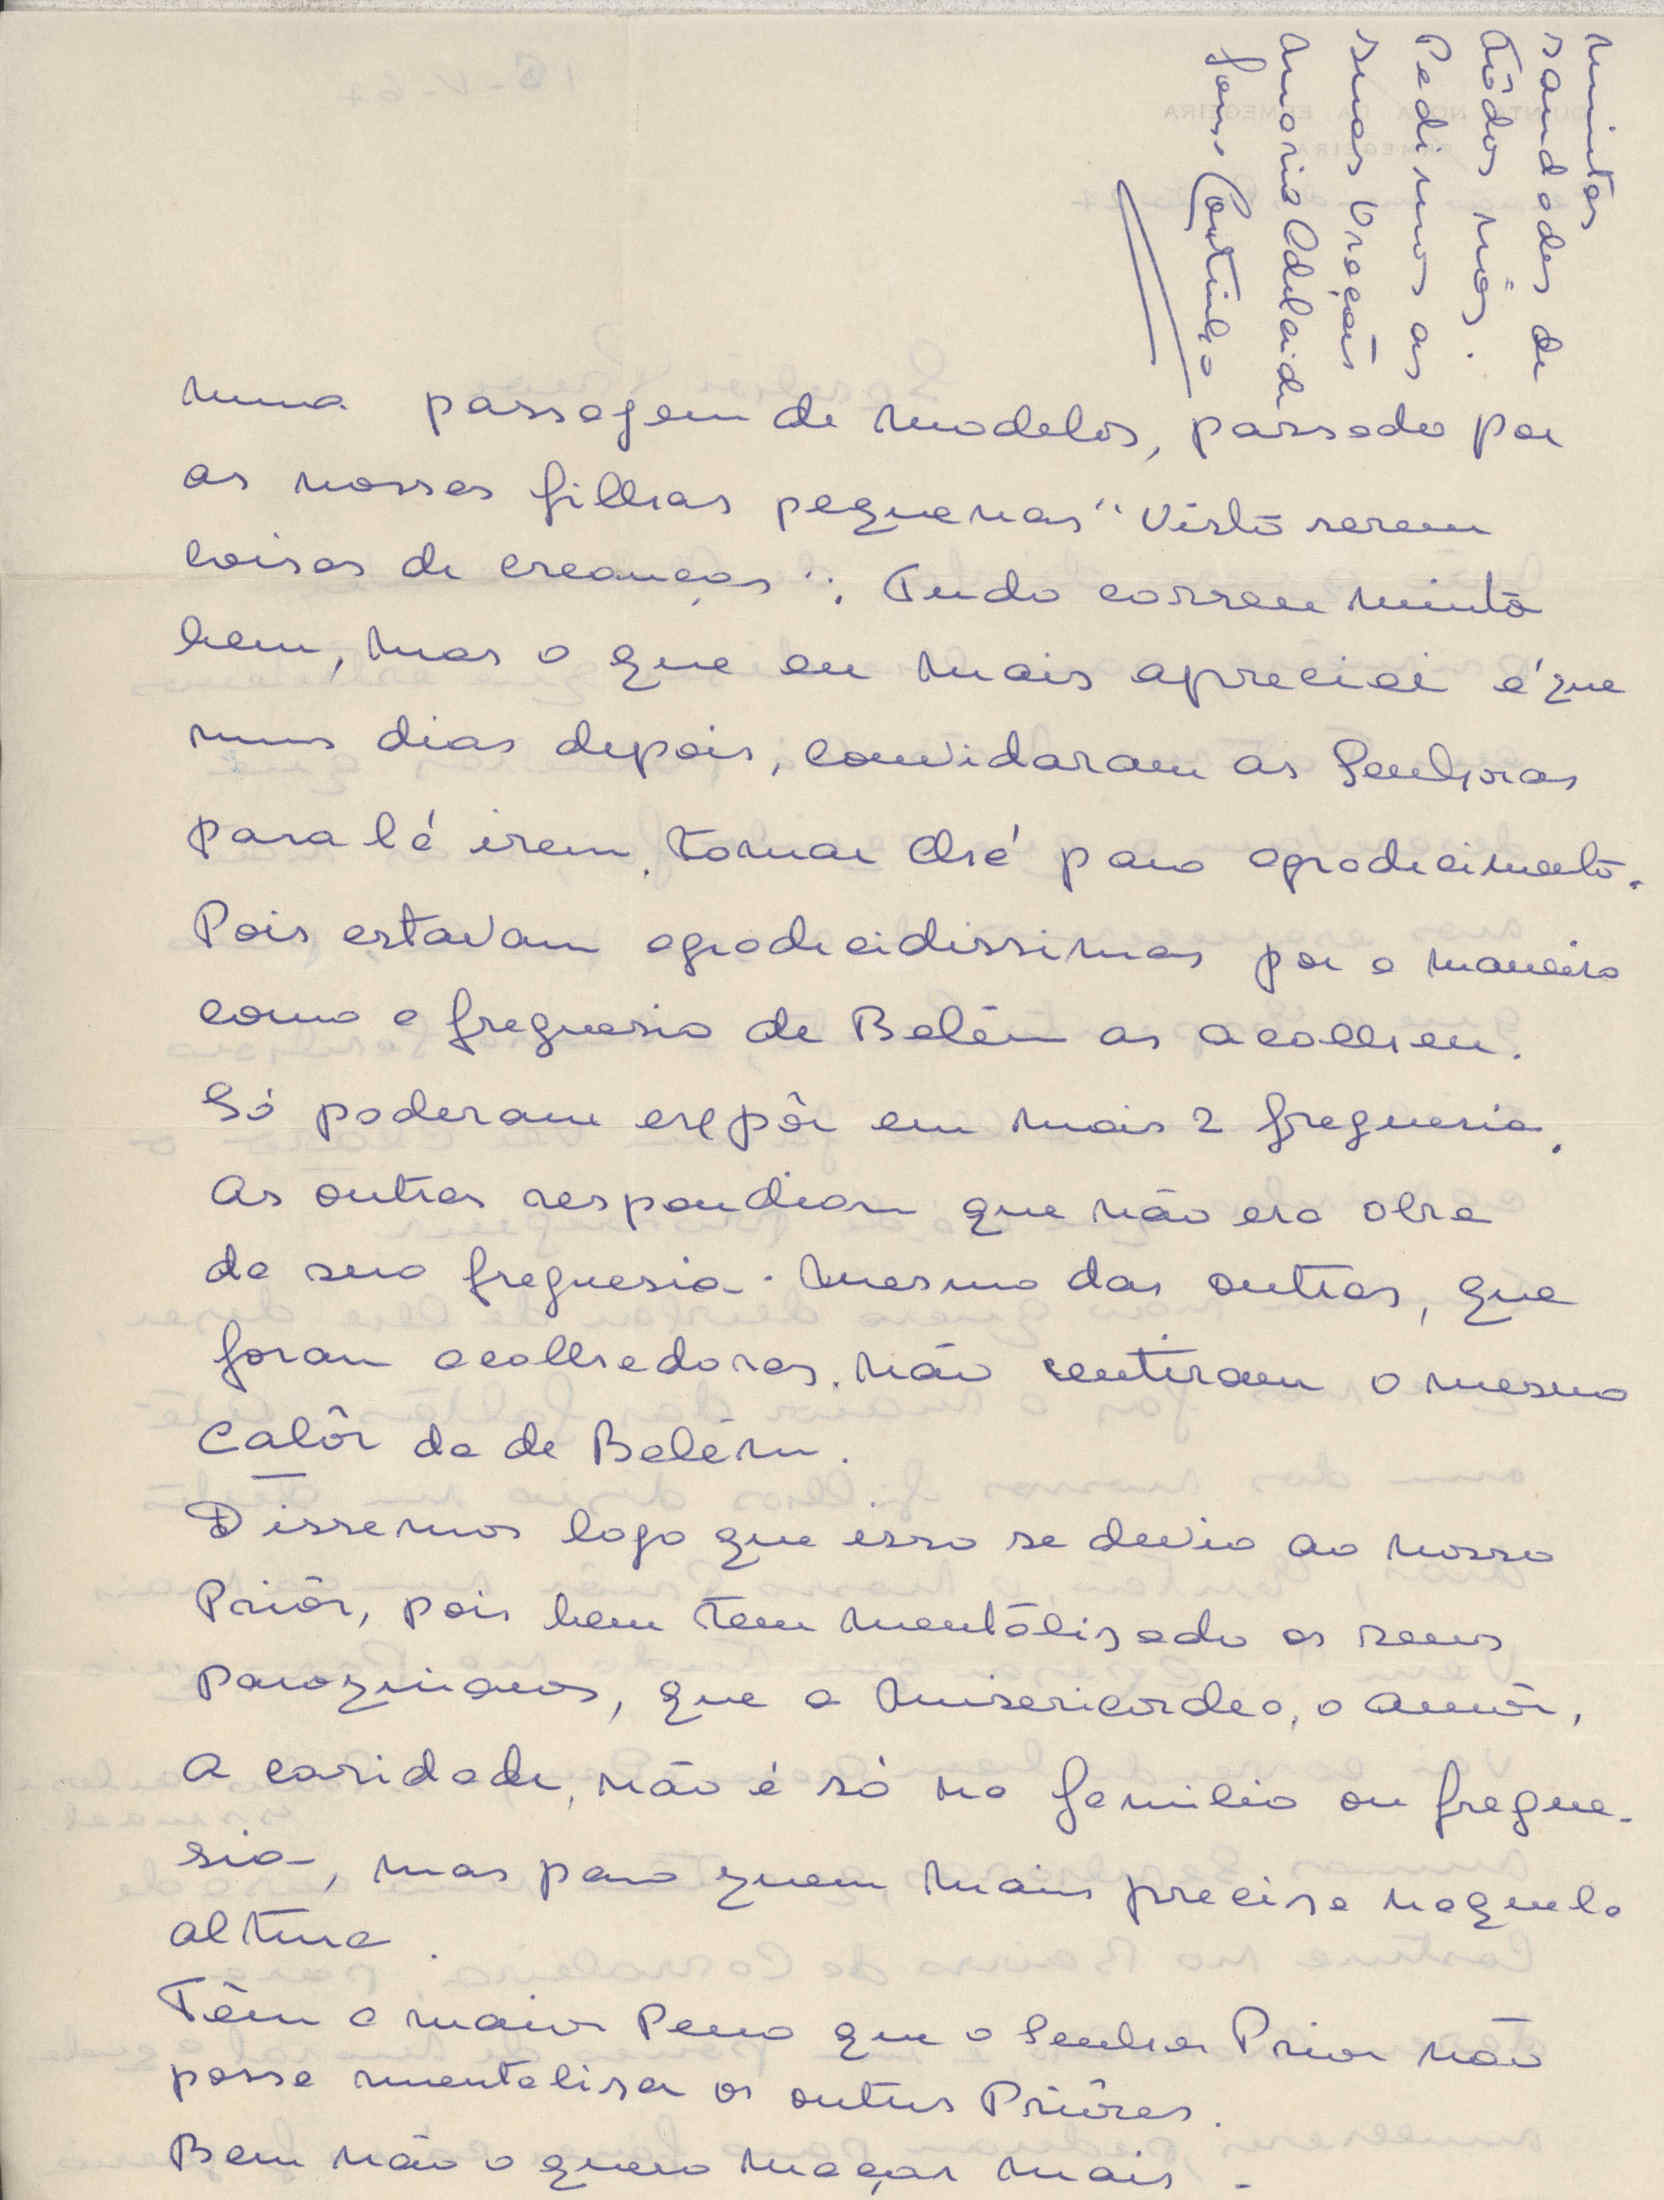 numa passagem de modelos, passado por
as nossas filhas pequenas "visto serem
coisas de creanças". Tudo correu muito
bem, mas o que eu mais apreciei é que
nuns dias depois, convidaram as Senhoras
para lá irem, tomar chá para agradecimento.
Pois estavam agradecidissimas por a maneira
como a freguesia de Belém as acolheu.
Só poderam expôr em mais 2 freguesia.
As outras respondiam que não era obra
da sua freguesia. Mesmo das outras, que
foram acolhedoras, não sentiram o mesmo
calôr da de Belém.
Dissemos logo que isso se devia ao nosso
Priôr, pois bem tem mentálisado os seus
paroquianos, que a misericordea, o amôr,
a caridade, não é só na familia ou fregue-
sia, mas para quem mais precisa naquela
altura.
Têm a maior Pena que o Senhor Prior não
possa mentalisar os outros Priôres.
Bem não o quero maçar mais.
Muitas
saudades de
tôdos nós.
Pedimos as
suas Orações
Maria Adelaide
Sousa Coutinho